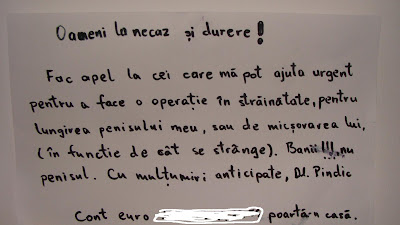 Oameni la necaz și durere!
Fac apel la cei care mă pot ajuta urgent
pentru a face o operație în străinătate, pentru
lungirea penisului meu, sau de micșorarea lui,
(în funcție de cât se strânge). Banii!!!, nu
penisul. Cu mulțumiri anticipate, Dl. Pindic
Cont euro poartă-n casă.